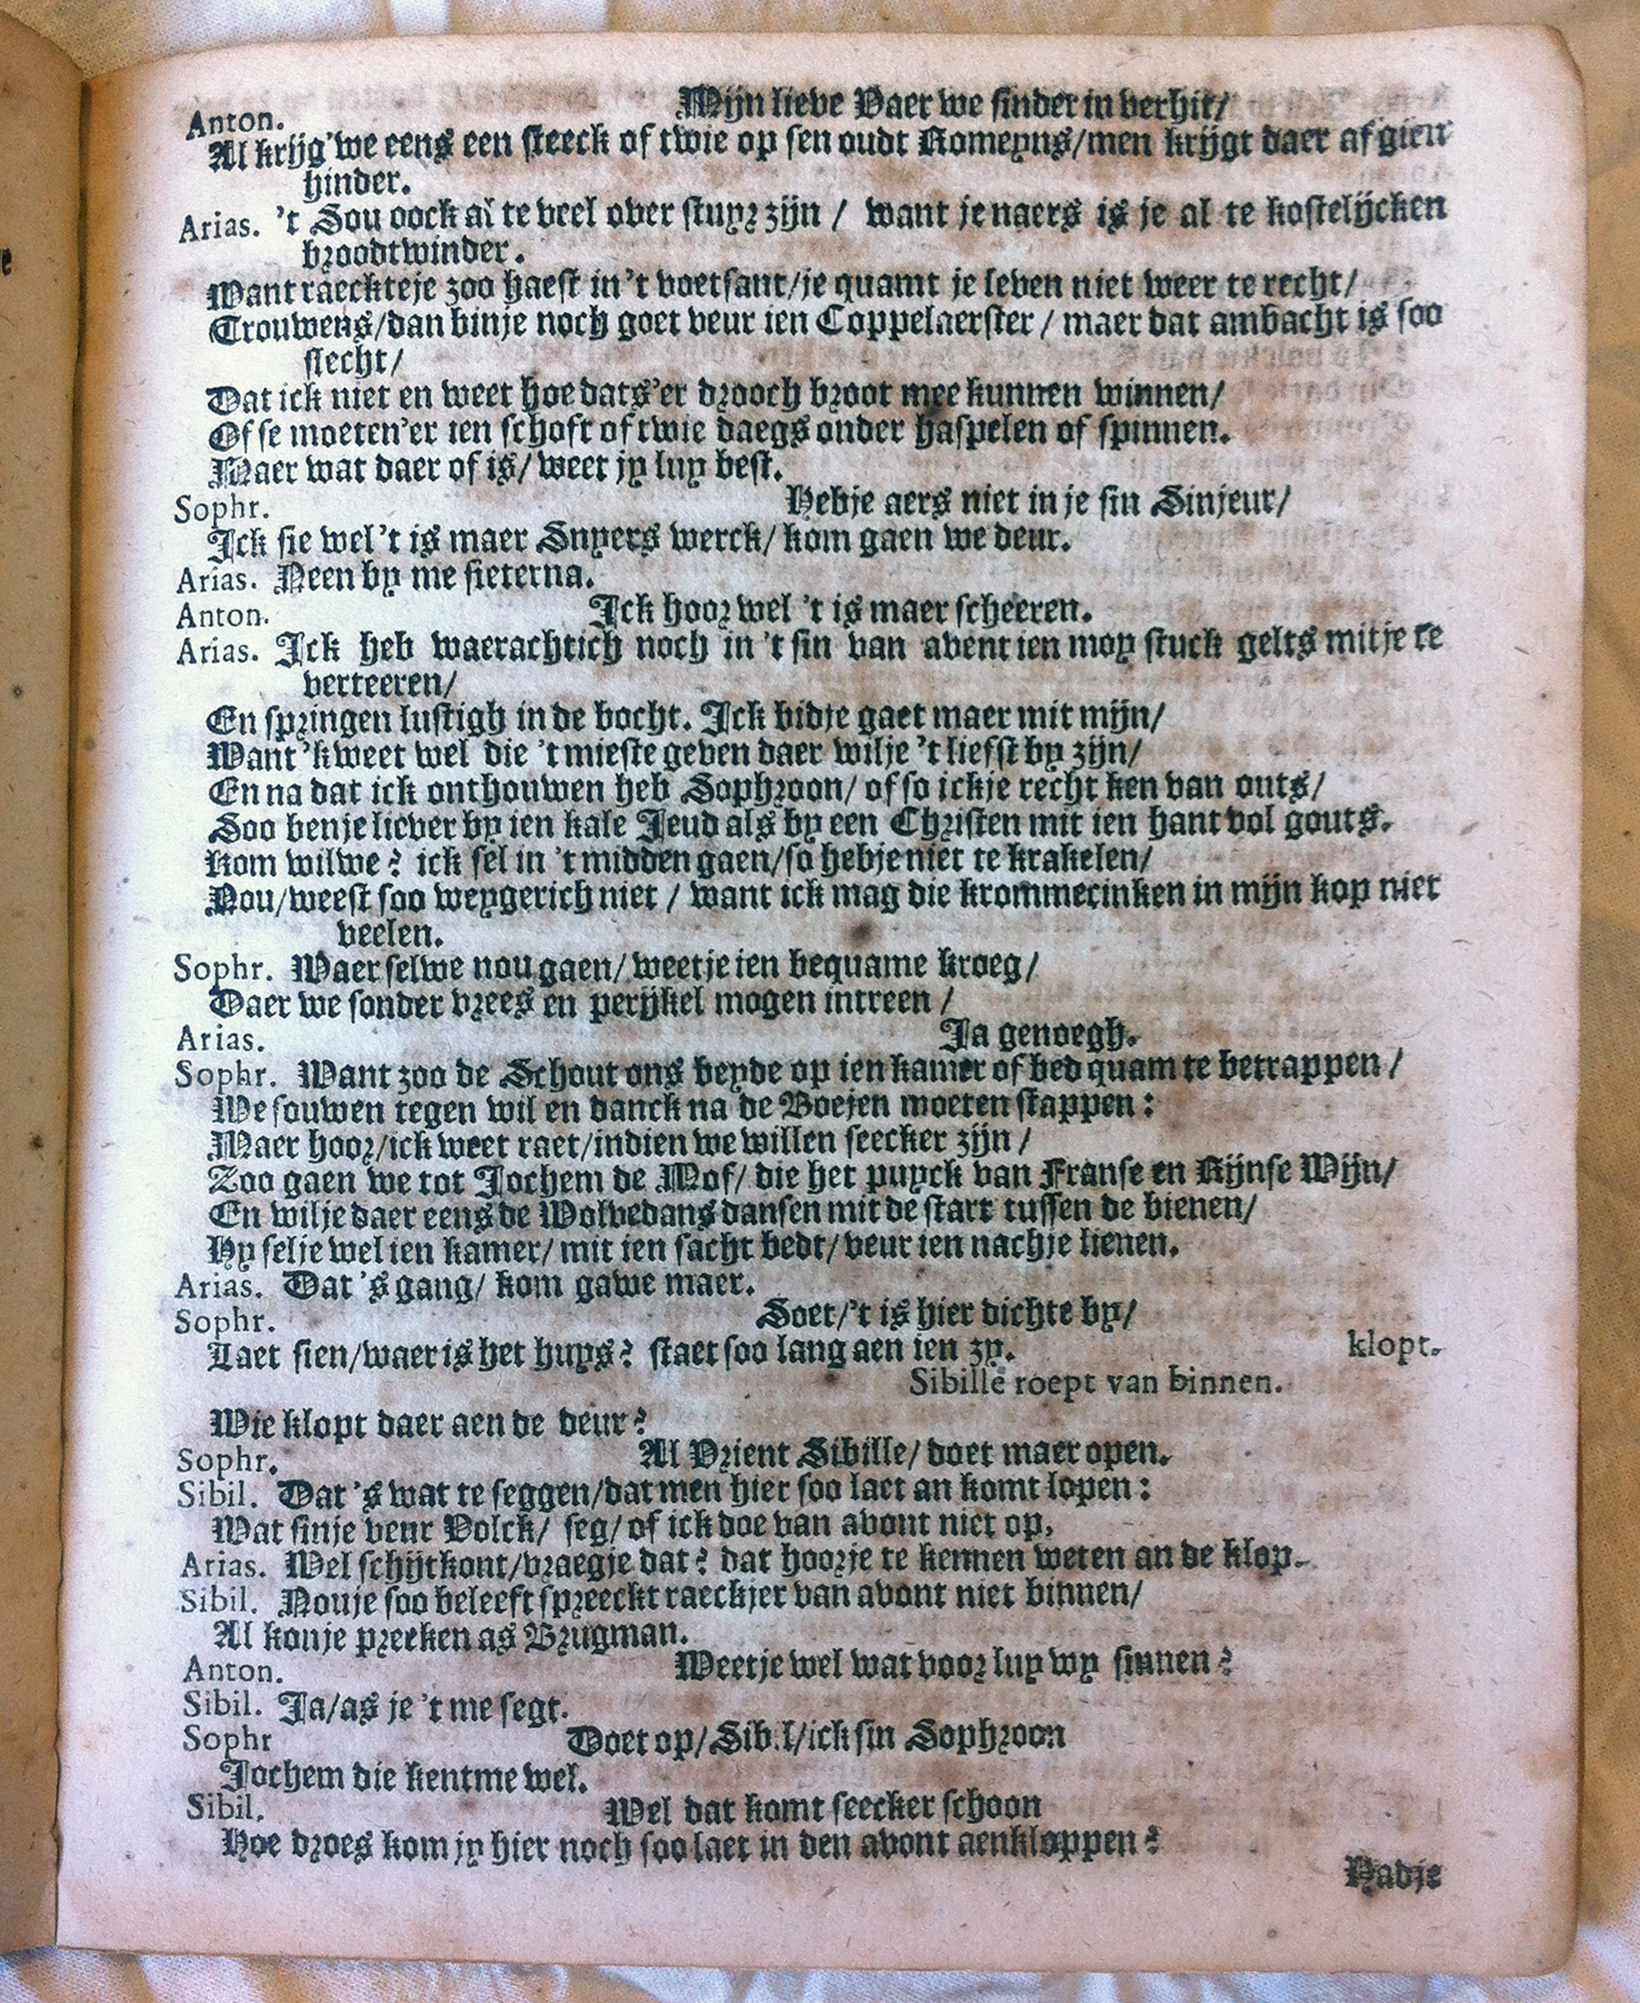 Anton. Mijn lieve Vaer we sinder in verhit/
Al krijg'we eens een steeck of twie op sen oudt Romeyns/men krijgt daer af gien
hinder.
Arias. 't Sou oock al te veel over stuyr zijn / want je naers is je al te kostelijcken
broodtwinder.
Want raeckteje zoo haest in 't voetsant/je quamt je leven niet weer te recht/
Trouwens/dan binje noch goet veur ien Coppelaerster / maer dat ambacht is soo
slecht/
Dat ick niet en weet hoe dats'er drooch broot mee kunnen winnen/
Of se moeten'er ien schoft of twie daegs onder haspelen of spinnen.
Maer wat daer of is/ weet jy luy best.
Sophr. Hebje aers niet in je sin Sinjeur/
Ick sie wel 't is maer Snyers werck/ kom gaen we deur.
Arias. Neen by me sieterna.
Anton. Ick hoor wel 't is maer scheeren.
Arias. Ick heb waerachtich noch in 't sin van avent ien moy stuck gelts mit je te
verteeren/
En springen lustigh in de bocht. Ick bidje gaet maer mit mijn/
Want 'k weet wel die 't mieste geven daer wilje 't liefst by zijn/
En na dat ick onthouwen heb Sophroon/ of so ickje recht ken van outs/
Soo benje liever by ien kale Jeud als by een Christen mit ien hant vol gouts.
Kom wilwe? ick sel in 't midden gaen/so hebje niet te krakelen/
Nou/weest soo weygerich niet / want ick mag die krommerinken in mijn kop niet
veelen.
Sophr. Waer selwe nou gaen/ weetje ien bequame kroeg/
Daer we sonder vrees en perijkel mogen intreen /
Arias. Ja genoegh.
Sophr. Want zoo de Schout ons beyde op ien kamer of bed quam te betrappen /
We souwen tegen wil en danck na de Boejen moeten stappen:
Maer hoor/ick weet raet/indien we willen seecker zijn /
Zoo gaen we tot Jochem de Mof/ die het puyck van Franse en Rijnse Wijn/
En wilje daer eens de Wolvedans dansen mit de start tussen de bienen/
Hy selje wel ien kamer/ mit ien sacht bedt/ veur ien nachje lienen.
Arias. Dat 's gang/ kom gawe maer.
Sophr. Soet/'t is hier dichte by/
Laet sien/waer is het huys? staet soo lang aen ien zy. klopt.
Sibille roept van binnen.
Wie klopt daer aen de deur?
Sophr. Al Vrient Sibille/ doet maer open.
Sibil. Dat 's wat te seggen/dat men hier soo laet an komt lopen:
Wat sinje veur Volck/ seg/ of ick doe van avont niet op,
Arias. Wel schijtkont/vraegje dat? dat hoorje te kennen weten an de klop.
Sibil. Nou je soo beleeft spreeckt raeckjer van avont niet binnen/
Al konje preeken as Brugman.
Anton. Weetje wel wat voor luy wy sinnen?
Sibil. Ja/as je 't me segt.
Sophr Doet op/ Sib.l/ick sin Sophroon
Jochem die kentme wel.
Sibil. Wel dat komt seecker schoon
Hoe droes kom jy hier noch soo laet in den avont aenkloppen?
Hadje